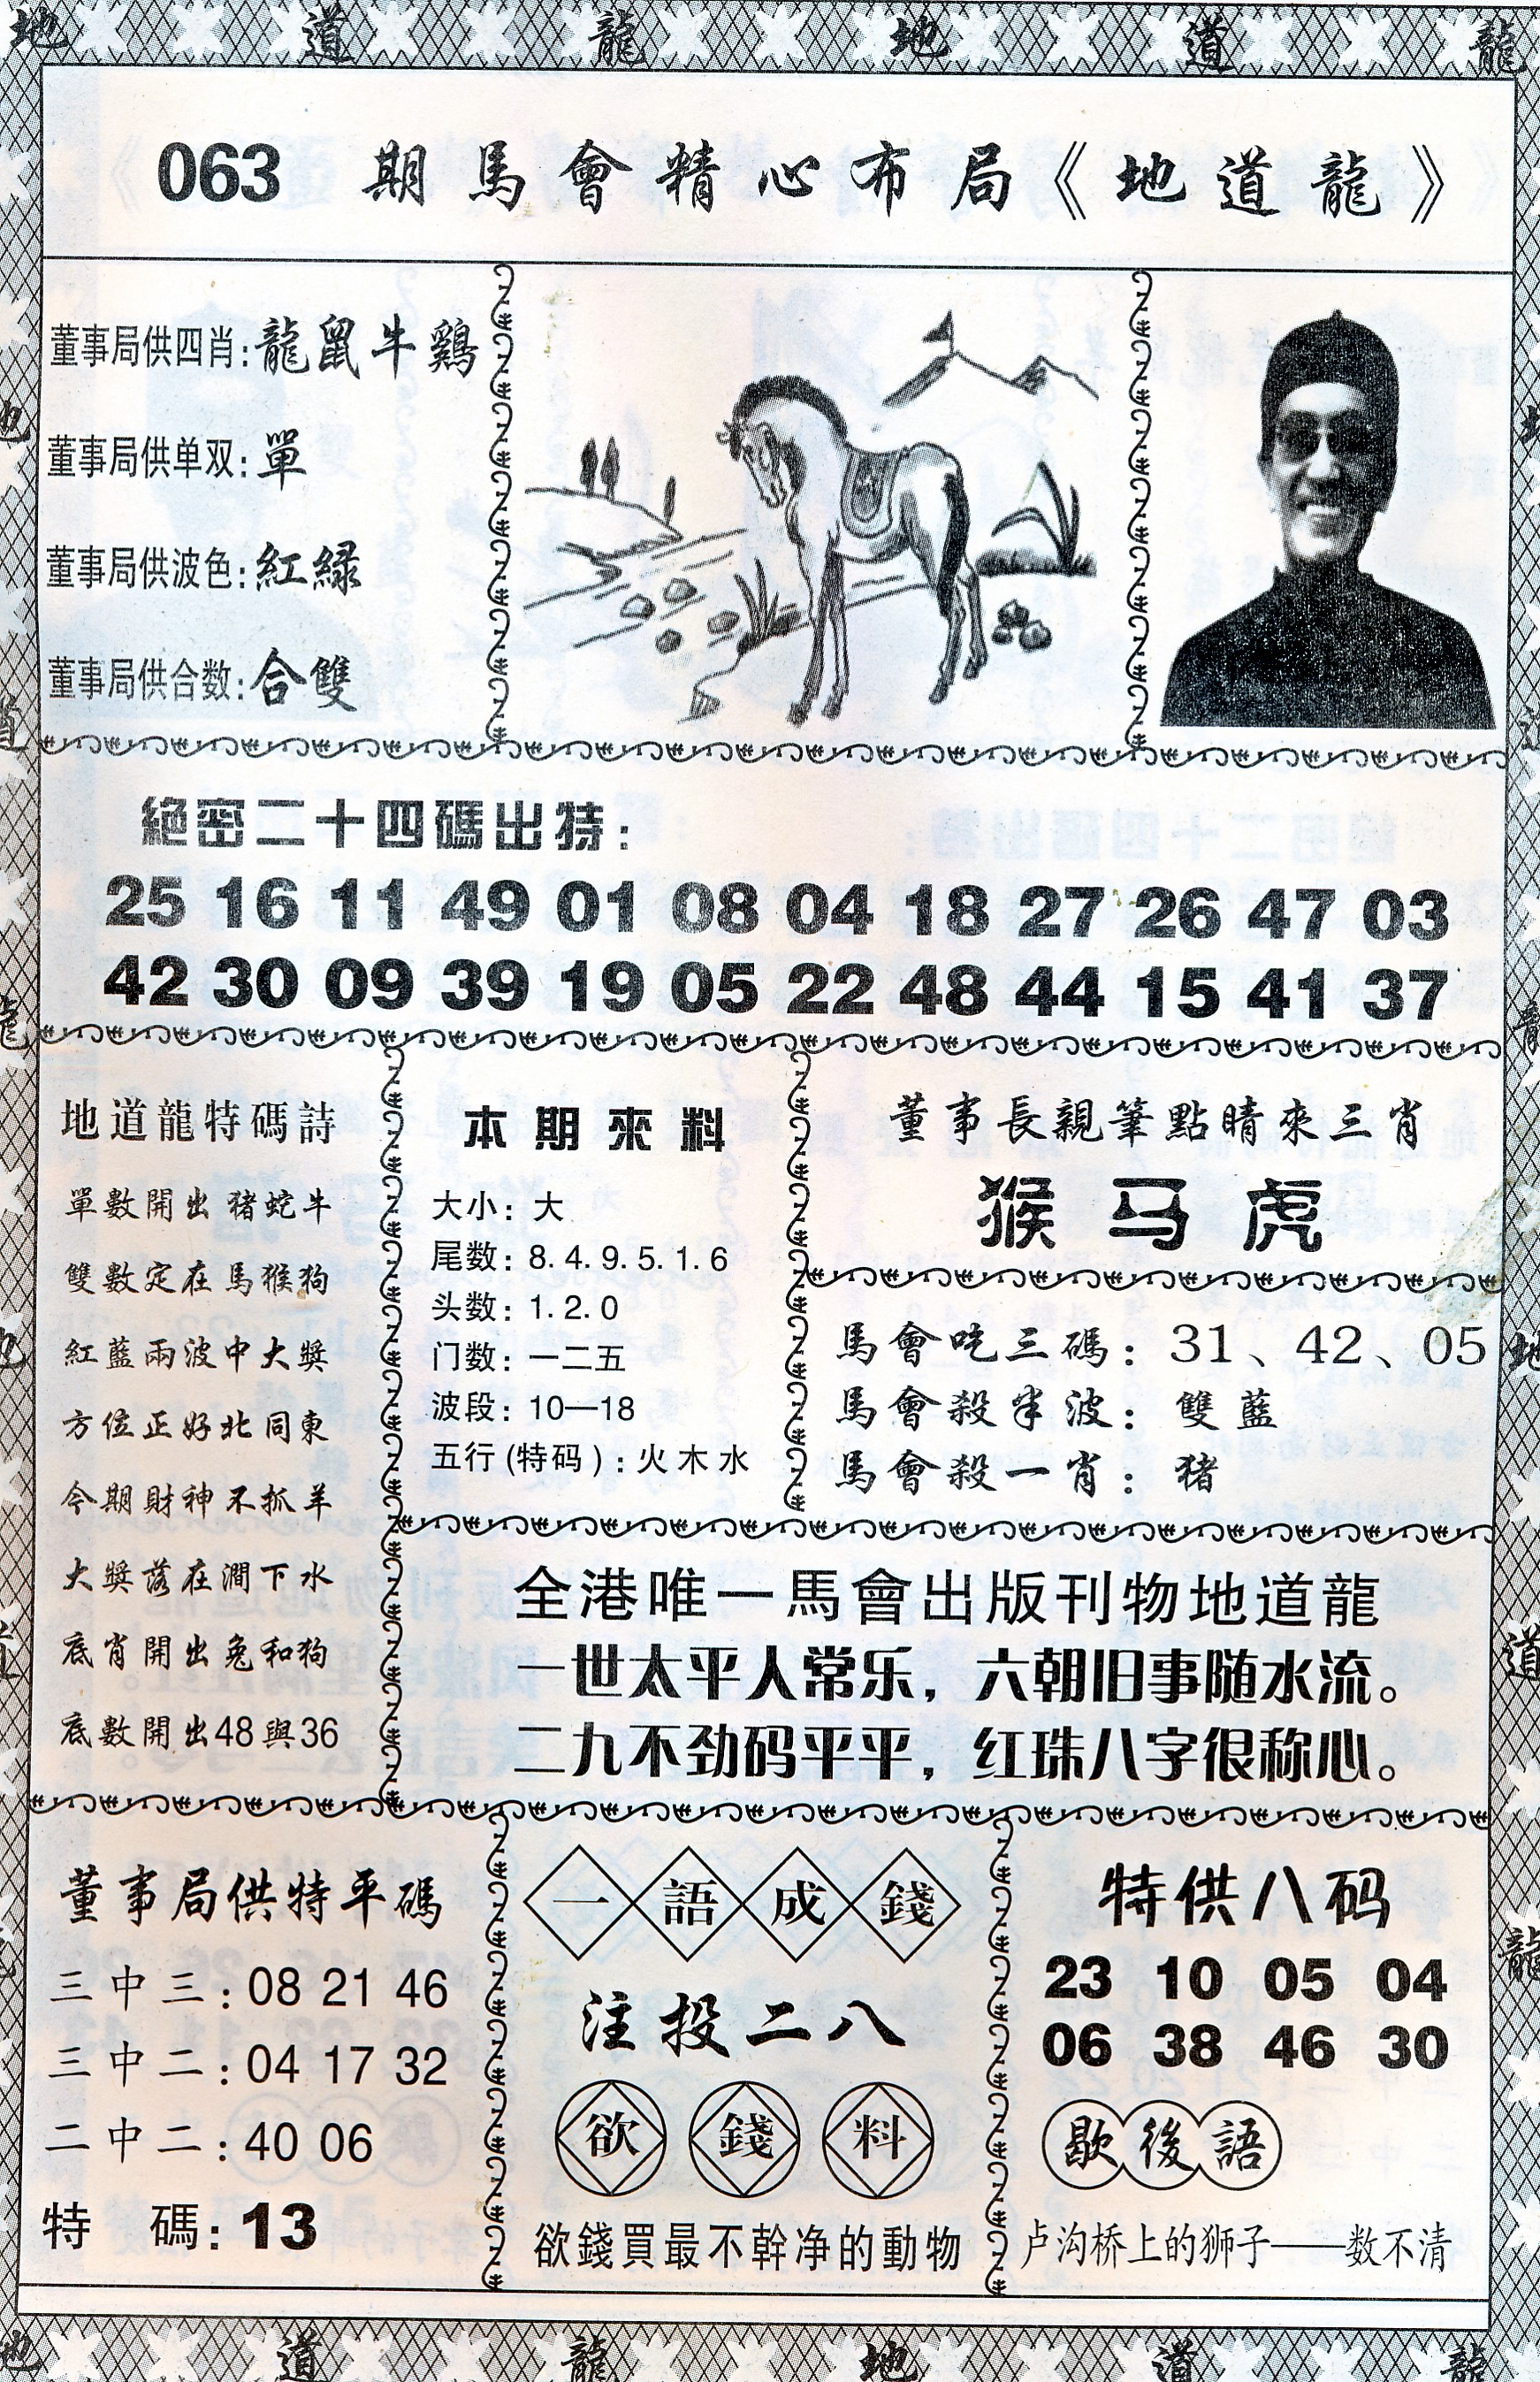 地 道 龍 地 道 龍
063 期馬會精心布局《地道龍》
董事局供四肖:龍鼠牛鷄
董事局供单双:單
董事局供波色:紅綠
董事局供合数:合雙
絕密二十四碼出特:
25 16 11 49 01 08 04 18 27 26 47 03
42 30 09 39 19 05 22 48 44 15 41 37
地道龍特碼詩
單數開出猪蛇牛
雙數定在馬猴狗
紅藍兩波中大獎
方位正好北同東
今期財神不抓羊
大獎落在澗下水
底肖開出兔和狗
底數開出48與36
本期來料
大小: 大
尾数: 8.4.9.5.1.6
头数: 1.2.0
门数: 一二五
波段: 10—18
五行(特码): 火木水
董事長親筆點睛來三肖
猴马虎
馬會吃三碼: 31、42、05
馬會殺半波: 雙藍
馬會殺一肖: 猪
全港唯一馬會出版刊物地道龍
一世太平人常乐，六朝旧事随水流。
二九不劲码平平，红珠八字很称心。
董事局供特平碼
三中三:08 21 46
三中二:04 17 32
二中二:40 06
特 碼:13
一語成錢
注投二八
欲錢料
欲錢買最不幹净的動物
特供八码
23 10 05 04
06 38 46 30
歇後語
卢沟桥上的狮子——数不清
地 道 龍 地 道 龍